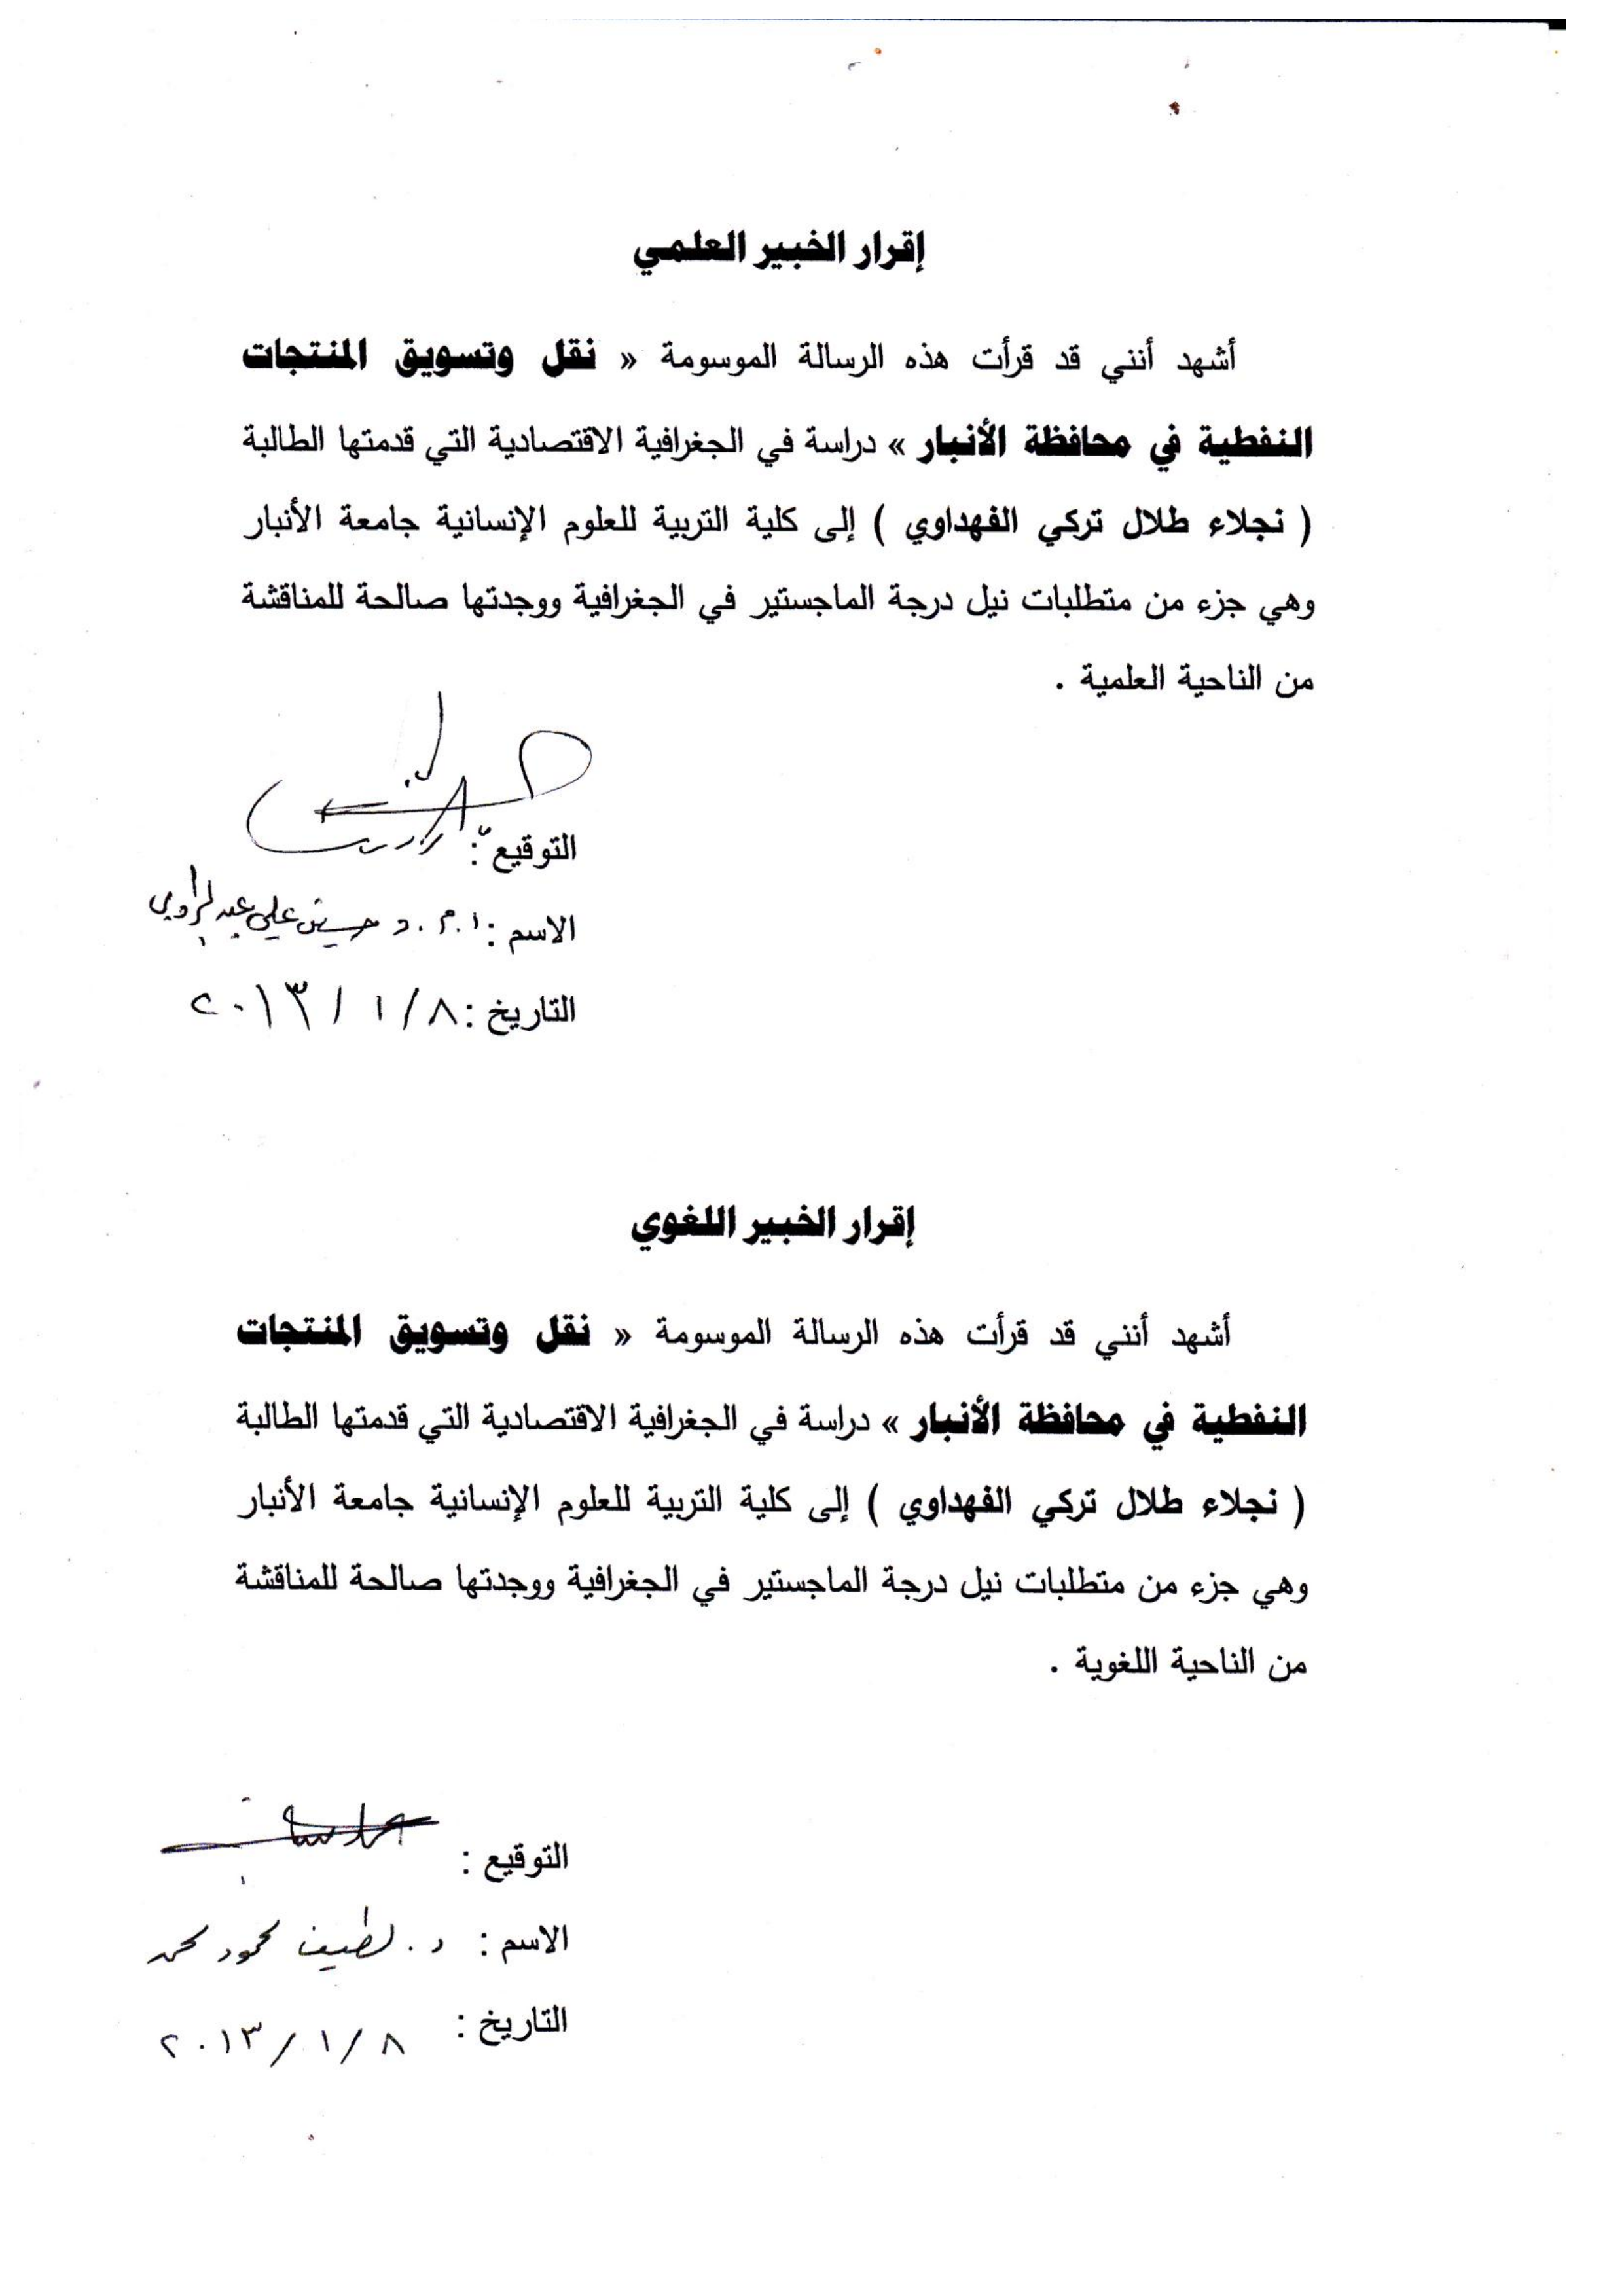 إقرار الخبير العلمي
أشهد أنني قد قرأت هذه الرسالة الموسومة « نقل وتسويق المنتجات
النفطية في محافظة الأنبار » دراسة في الجغرافية الاقتصادية التي قدمتها الطالبة
( نجلاء طلال تركي الفهداوي ) إلى كلية التربية للعلوم الإنسانية جامعة الأنبار
وهي جزء من متطلبات نيل درجة الماجستير في الجغرافية ووجدتها صالحة للمناقشة
من الناحية العلمية .
التوقيع :
الاسم : ا.م.د حسين علي عبد الراوي
التاريخ : ٨ / ١ / ٢٠١٣
إقرار الخبير اللغوي
أشهد أنني قد قرأت هذه الرسالة الموسومة « نقل وتسويق المنتجات
النفطية في محافظة الأنبار » دراسة في الجغرافية الاقتصادية التي قدمتها الطالبة
( نجلاء طلال تركي الفهداوي ) إلى كلية التربية للعلوم الإنسانية جامعة الأنبار
وهي جزء من متطلبات نيل درجة الماجستير في الجغرافية ووجدتها صالحة للمناقشة
من الناحية اللغوية .
التوقيع :
الاسم : د. لطيف محمود محمد
التاريخ : ٨ / ١ / ٢٠١٣